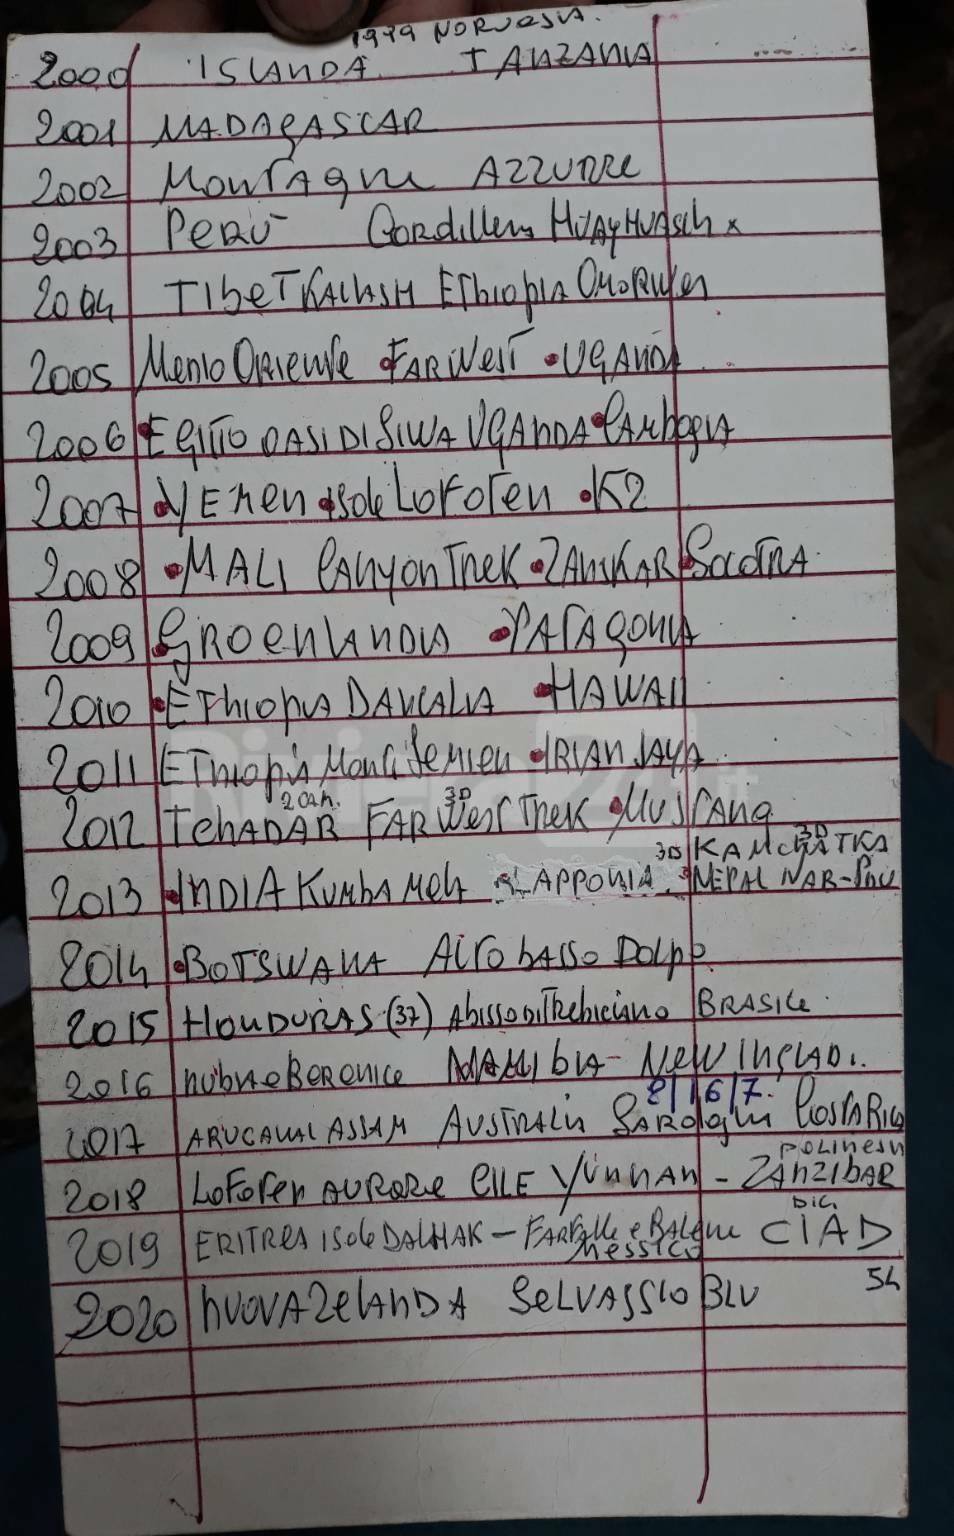 1999 NORVEGIA.
2000 ISLANDA TANZANIA
2001 MADAGASCAR
2002 MONTAGNE AZZURRE
2003 PERÙ Cordillera HUAYHUASCH x
2004 TIBET KALASH EThIOPIA OMORIVER
2005 Medio Oriente FARWEST • UGANDA
2006 • EGITTO OASI DI SIWA UGANDA • CAMbogIA
2007 • YEMEN • isole LOFOTEN • K2
2008 • MALI CANYON TREK • ZANSKAR SOCOTRA
2009 • GROENLANDIA • PATAGONIA
2010 • EThIOPIA DANCALIA • HAWAII
2011 EThIOPIA Monti Semien • IRIAN JAYA
2 Orh. 3D
2012 TChADAR FAR West Trek • MUSTANG
3D KAMCHATKA 3D
2013 • INDIA KUMbA MELA • LAPPONIA • NEPAL NAR-PHU
2014 • BOTSWANA ALTO bASSO DOLPO
2015 HONDURAS (37) AbISSO DI TREbICIANO BRASILE
2016 NUbIA e BERENICE NAMIbIA - NEW INGLAD.
8/16/7.
2017 ARUCANAL ASSAM AUSTRALIA SARDEGNA COSTARICA
POLINESIA
2018 LOFOTEN AURORE CILE YUNNAN - ZANZIBAR
DIC.
2019 ERITREA ISOLE DALHAK - FARFALLE e BALENE CIAD
MESSICO
54
2020 NUOVA ZELANDA SELVAGGIO BLU
Riviera24.it